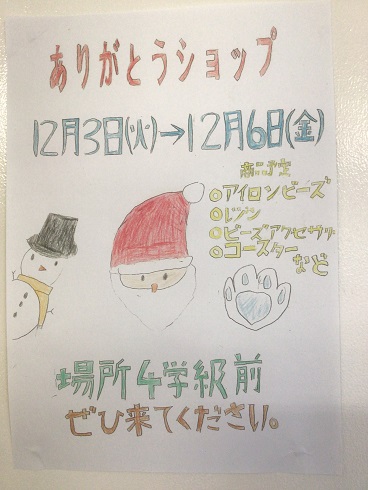 ありがとうショップ
12月3日(火)→12月6日(金)
商品予定
○アイロンビーズ
○レジン
○ビーズアクセサリー
○コースター
など
場所4学級前
ぜひ来てください。